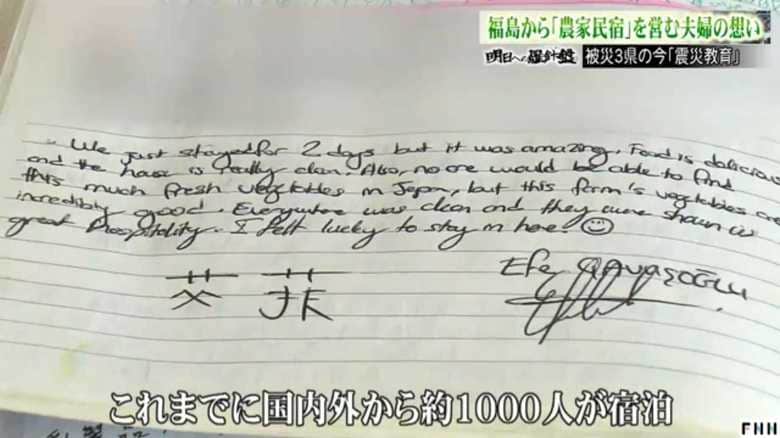 福島から「農家民宿」を営む夫婦の想い
明日への羅針盤 被災3県の今「震災教育」
We just stayed for 2 days but it was amazing. Food is delicious
and the house is really clean. Also, no one would be able to find
this much fresh vegetables in Japan, but this farm's vegetables are
incredibly good. Everywhere was clean and they were shown us
great hospitality. I felt lucky to stay in here! ☺
Efe ÇAVUŞOĞLU
これまでに国内外から約1000人が宿泊
FNN